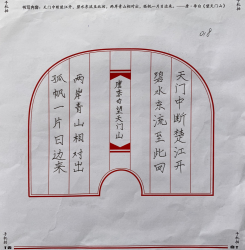 书写内容：天门中断楚江开，碧水东流至此回。两岸青山相对出，孤帆一片日边来。——唐·李白《望天门山》
08
天门中断楚江开
碧水东流至此回
唐李白望天门山
两岸青山相对出
孤帆一片日边来